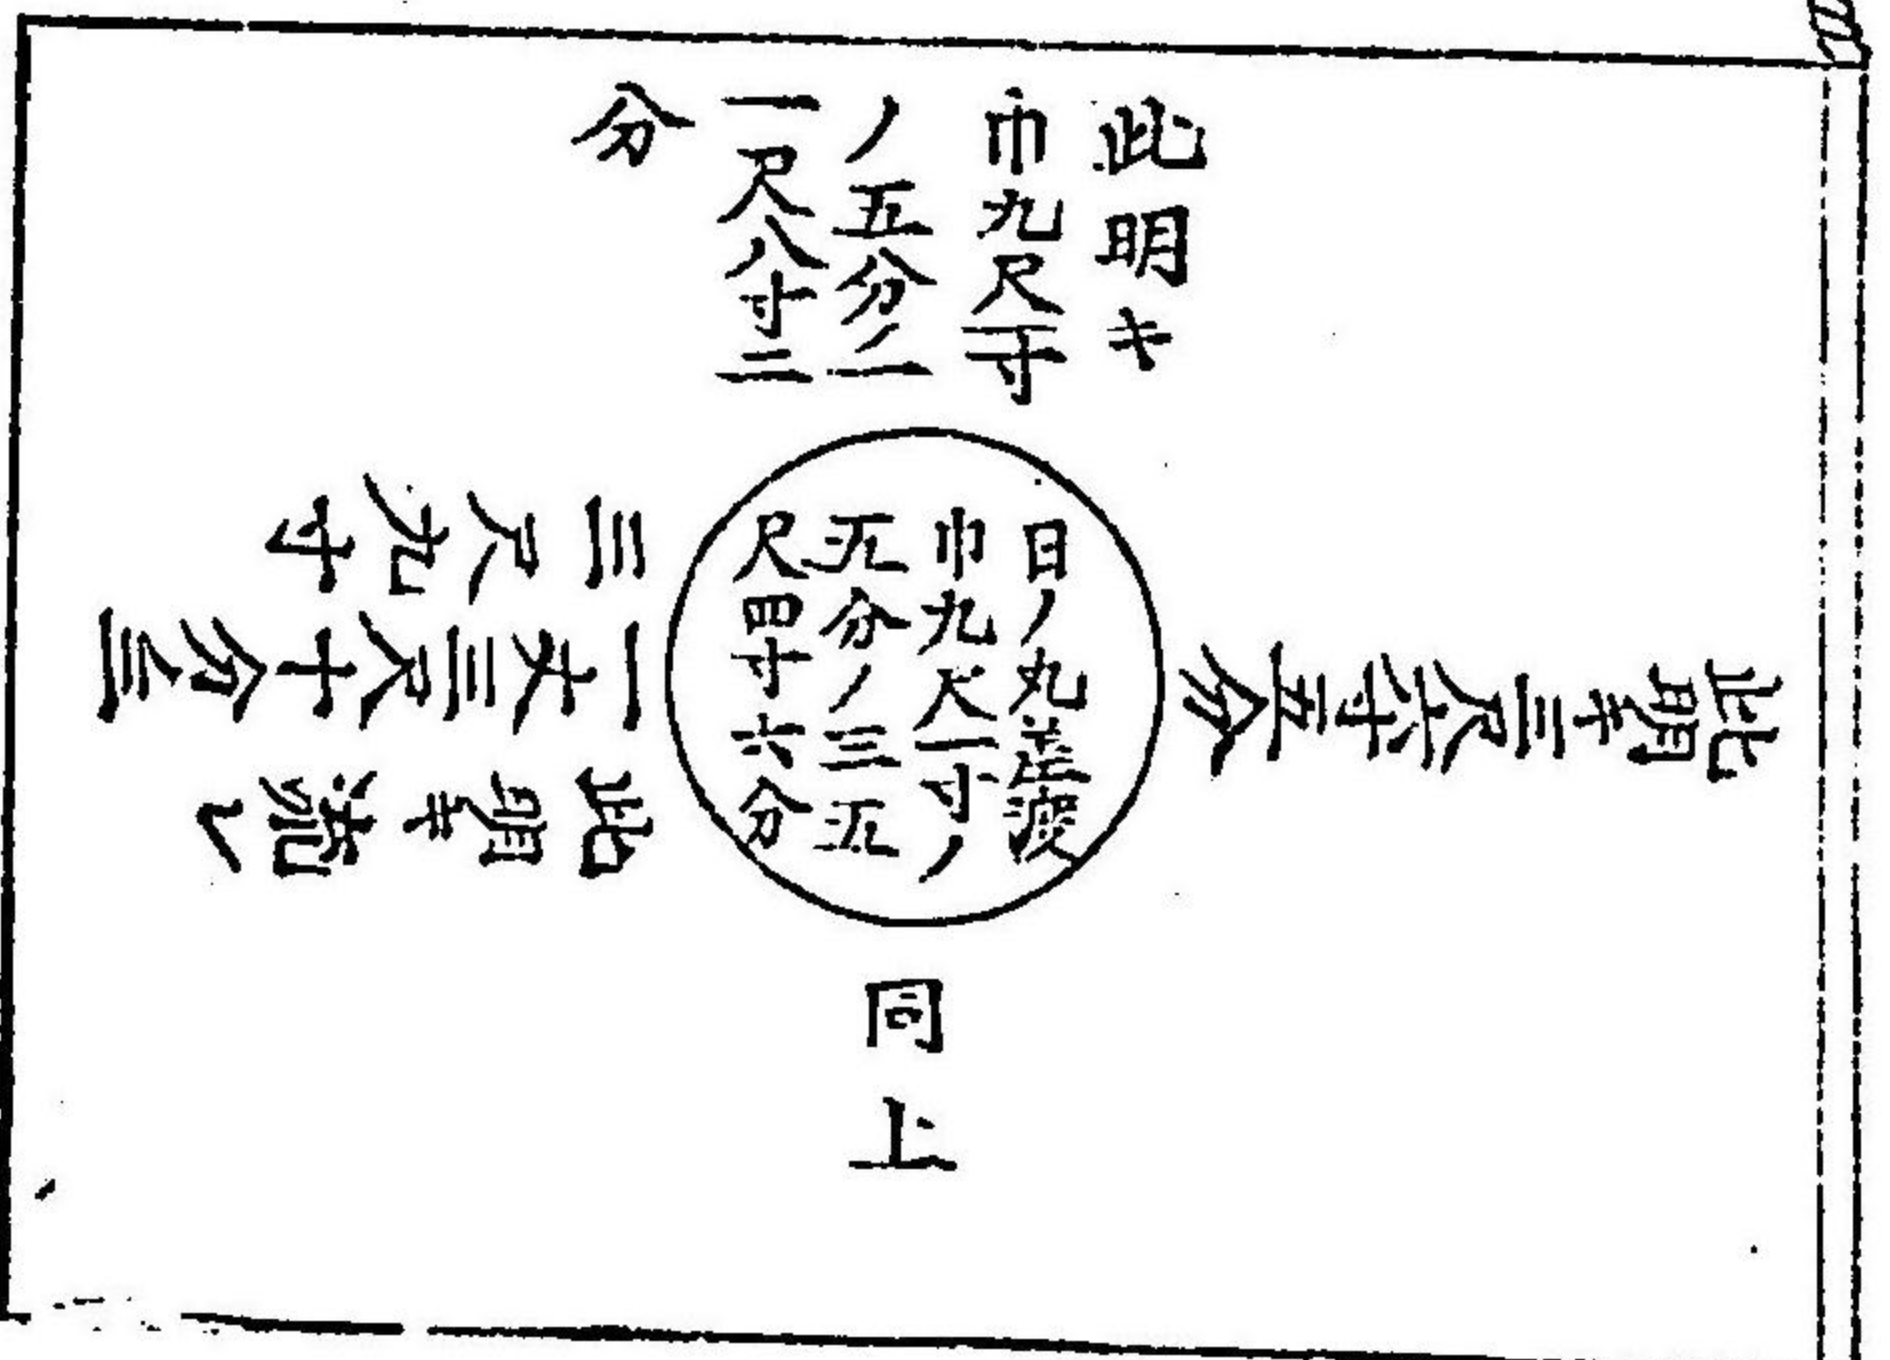 此明キ
巾九尺一寸
ノ五分ノ一
一尺八寸二
分
此明キ三尺六寸五分
日ノ丸差渡
巾九尺一寸ノ
五分ノ三五
尺四寸六分
此明キ流レ
一丈三尺十分ノ三
三尺九寸
同上